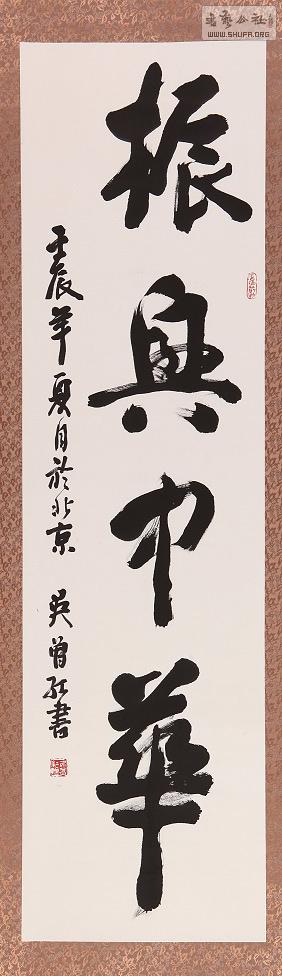 振興中華
壬辰年夏月於北京 吳曾
書
書藝公社
WWW.SHUFA.ORG